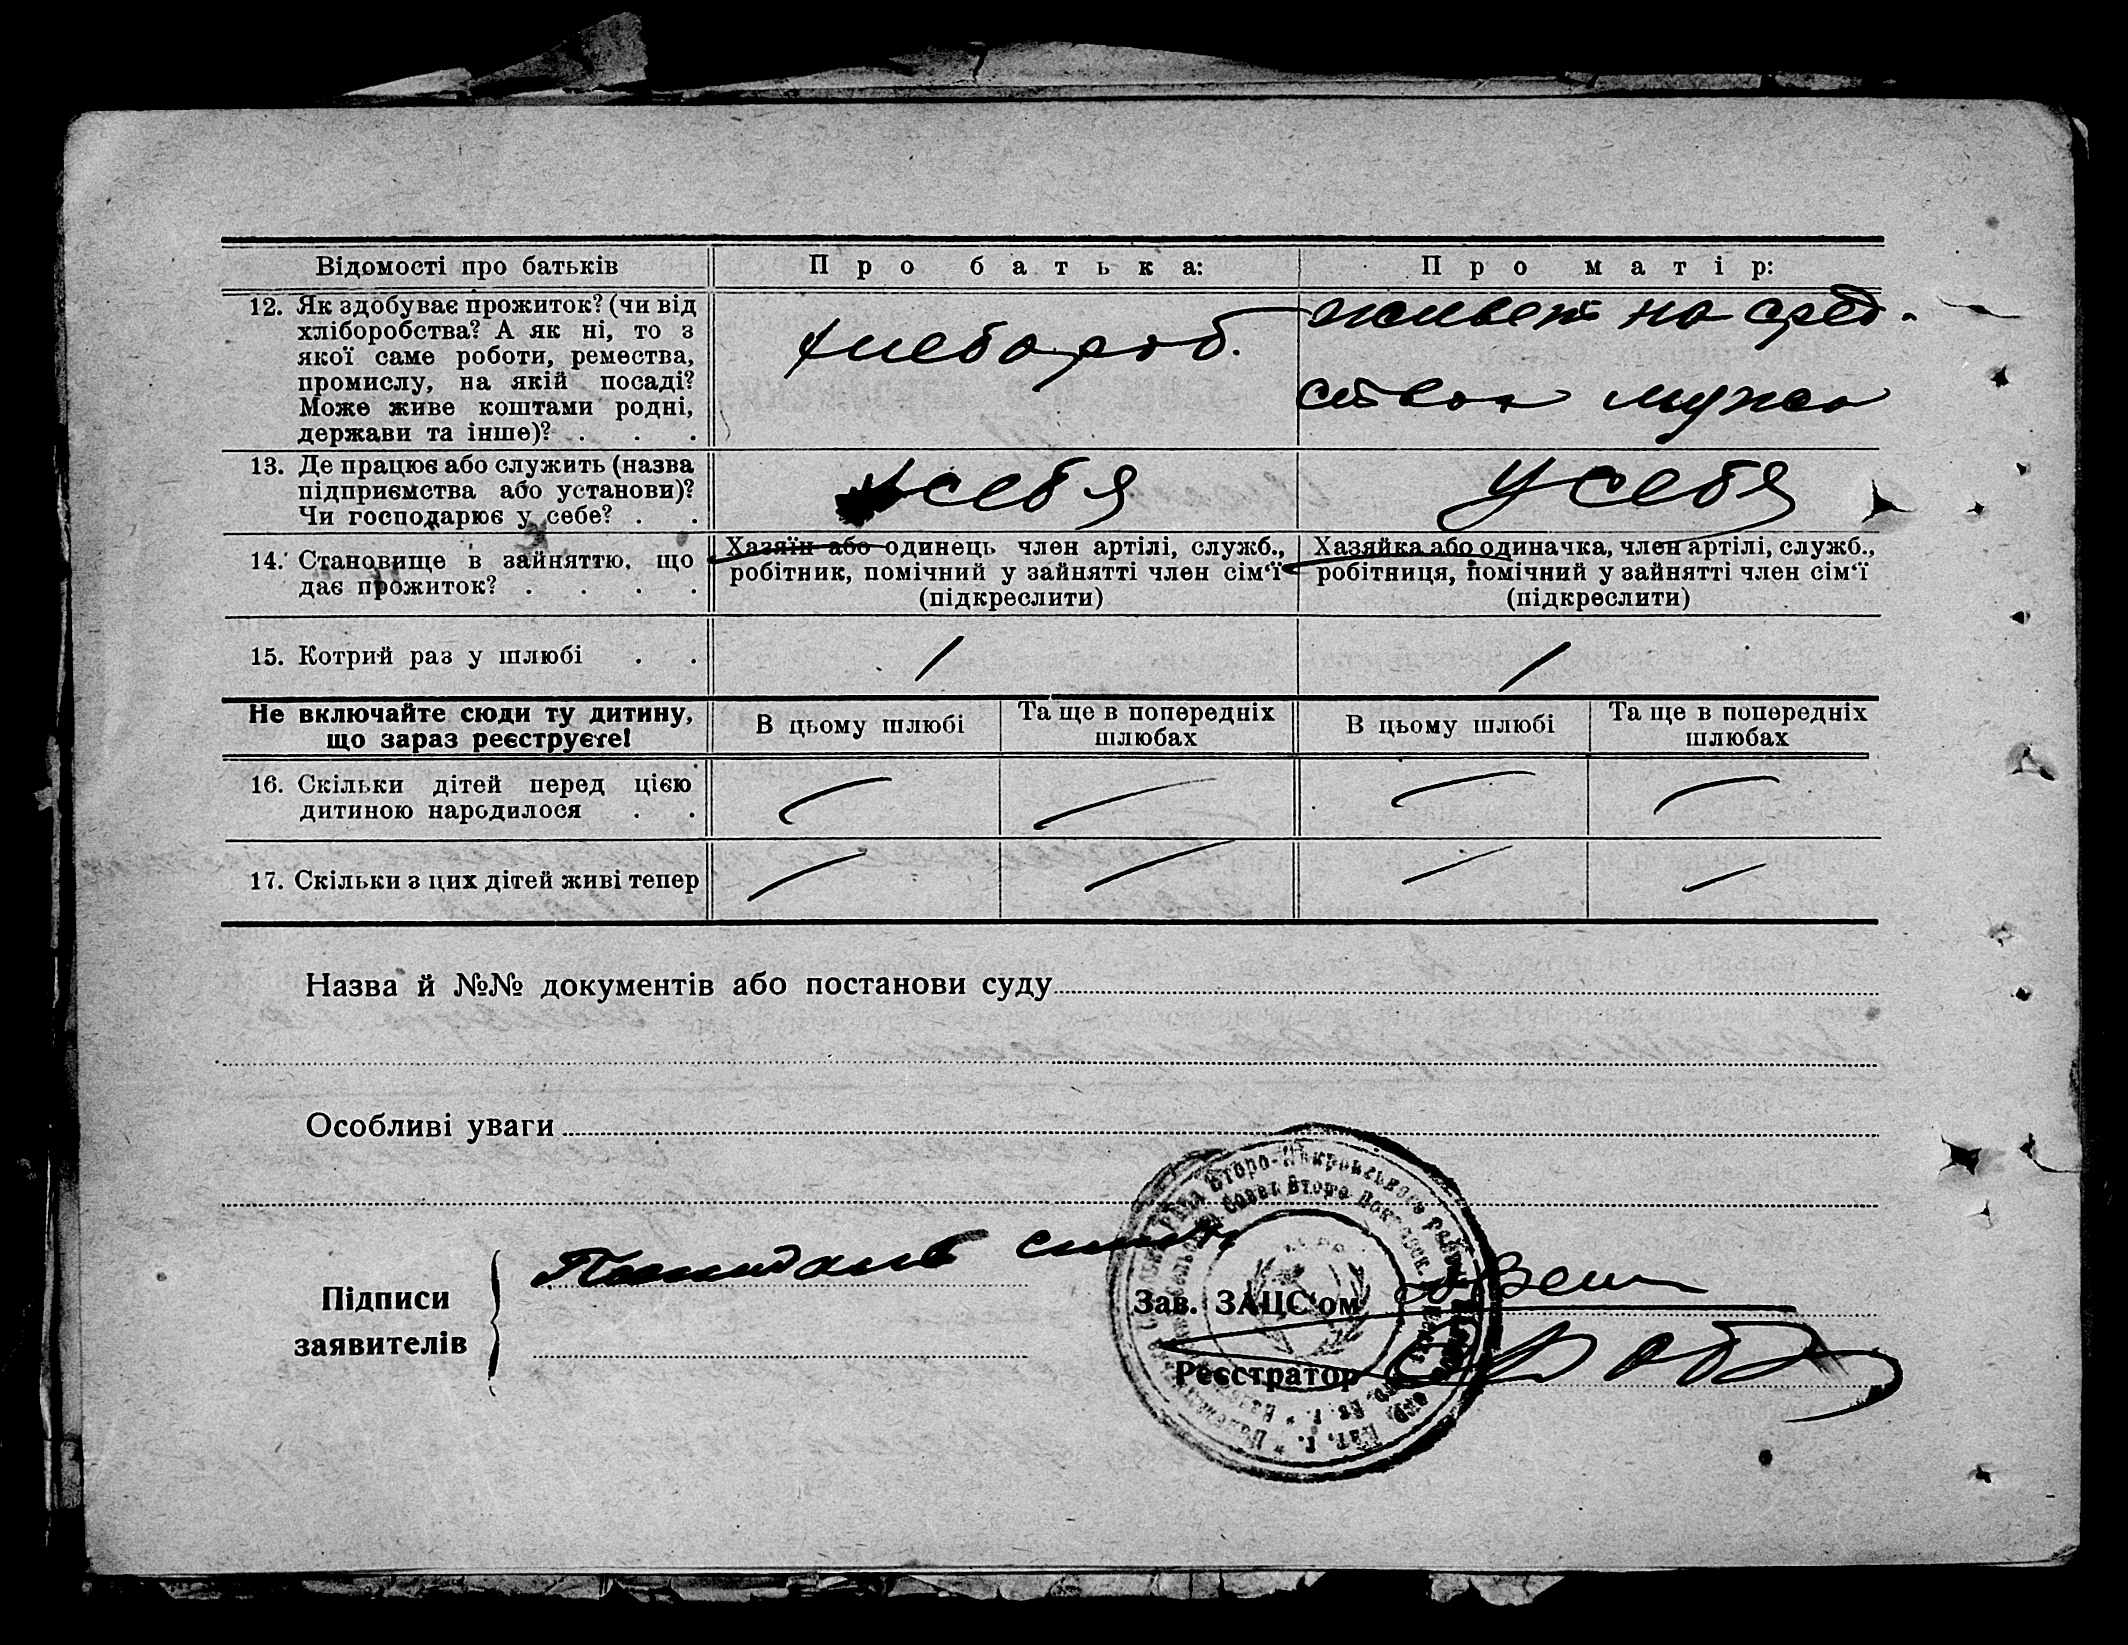 Відомості про батьків
Про батька:
Про матір:
12. Як здобуває прожиток? (чи від
хліборобства? А як ні, то з
якої саме роботи, ремества,
промислу, на якій посаді?
Може живе коштами родні,
держави та інше)? . . .
хлебороб.
живет на сред-
ства мужа
13. Де працює або служить (назва
підприємства або установи)?
Чи господарює у себе? . .
у себя
у себя
14. Становище в зайняттю, що
дає прожиток? . . . .
Хазяїн або одинець член артілі, служб.,
робітник, помічний у зайнятті член сім‘ї
(підкреслити)
Хазяйка або одиначка, член артілі, служб.,
робітниця, помічний у зайнятті член сім‘ї
(підкреслити)
15. Котрий раз у шлюбі . .
1
1
Не включайте сюди ту дитину,
що зараз реєструєте!
В цьому шлюбі
Та ще в попередніх
шлюбах
В цьому шлюбі
Та ще в попередніх
шлюбах
16. Скільки дітей перед цією
дитиною народилося . .
17. Скільки з цих дітей живі тепер
Назва й №№ документів або постанови суду
Особливі уваги
Підписи
заявителів
Зав. ЗАЦС‘ом
Реєстратор